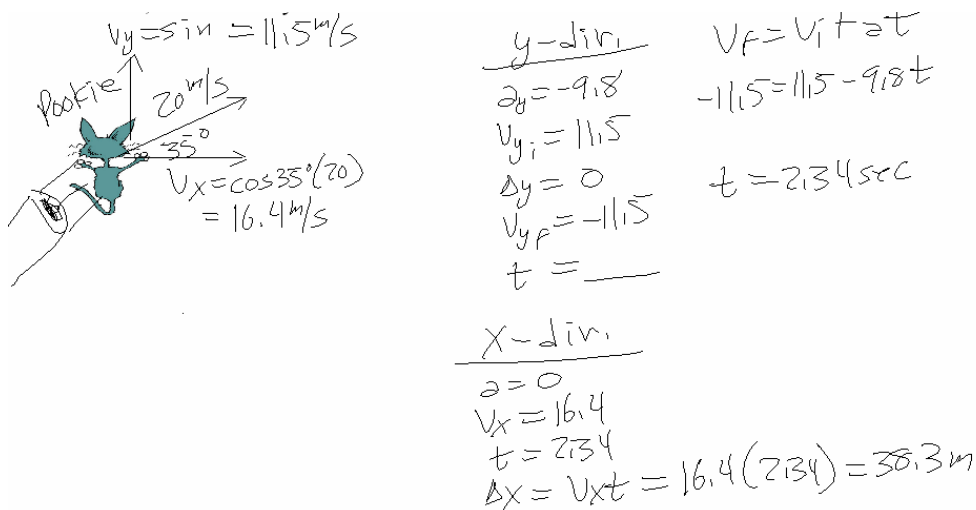 Vy=sin = 11.5 m/s
Pookie
20 m/s
35°
Vx=cos35°(20)
= 16.4 m/s
y-dir.
ay=-9.8
Vyi = 11.5
Δy = 0
Vyf = -11.5
t = ____
Vf = Vi + at
-11.5=11.5-9.8t
t = 2.34 sec
x-dir.
a = 0
Vx = 16.4
t = 2.34
Δx = Vxt = 16.4(2.34) = 38.3 m